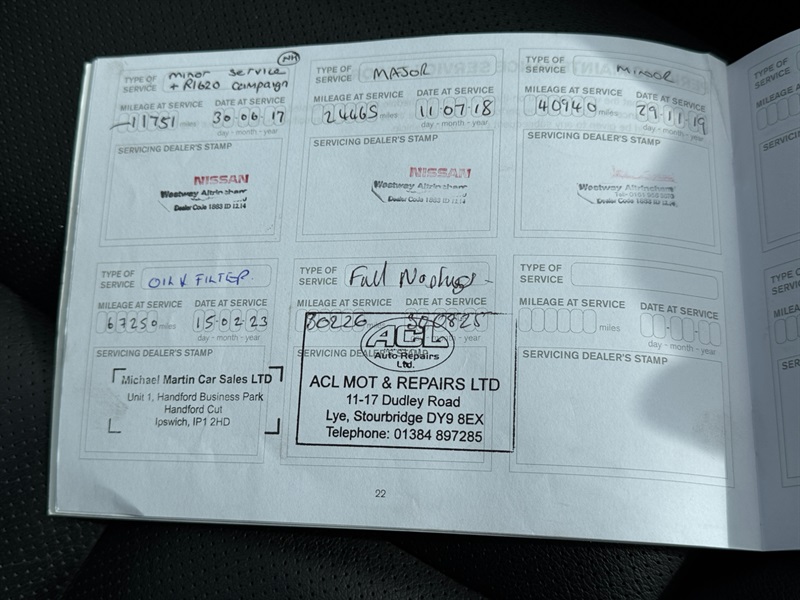 NH
TYPE OF SERVICE minor service
+ R1620 campaign
MILEAGE AT SERVICE DATE AT SERVICE
11751 miles 30·06·17
day - month - year
SERVICING DEALER'S STAMP
NISSAN
Westway Altrincham
Dealer Code 1663 ID 12.14
TYPE OF SERVICE MAJOR
MILEAGE AT SERVICE DATE AT SERVICE
24465 miles 11·07·18
day - month - year
SERVICING DEALER'S STAMP
NISSAN
Westway Altrincham
Dealer Code 1663 ID 12.14
TYPE OF SERVICE MINOR
MILEAGE AT SERVICE DATE AT SERVICE
40940 miles 29·11·19
day - month - year
SERVICING DEALER'S STAMP
Westway Altrincham
TYPE OF SERVICE OIL & FILTER.
MILEAGE AT SERVICE DATE AT SERVICE
67250 miles 15·02·23
day - month - year
SERVICING DEALER'S STAMP
Michael Martin Car Sales LTD
Unit 1, Handford Business Park
Handford Cut
Ipswich, IP1 2HD
TYPE OF SERVICE Full
MILEAGE AT SERVICE DATE AT SERVICE
80226 300825
SERVICING DEALER'S STAMP
ACL
Auto Repairs
Ltd.
ACL MOT & REPAIRS LTD
11-17 Dudley Road
Lye, Stourbridge DY9 8EX
Telephone: 01384 897285
TYPE OF SERVICE
MILEAGE AT SERVICE DATE AT SERVICE
miles
day - month - year
SERVICING DEALER'S STAMP
22